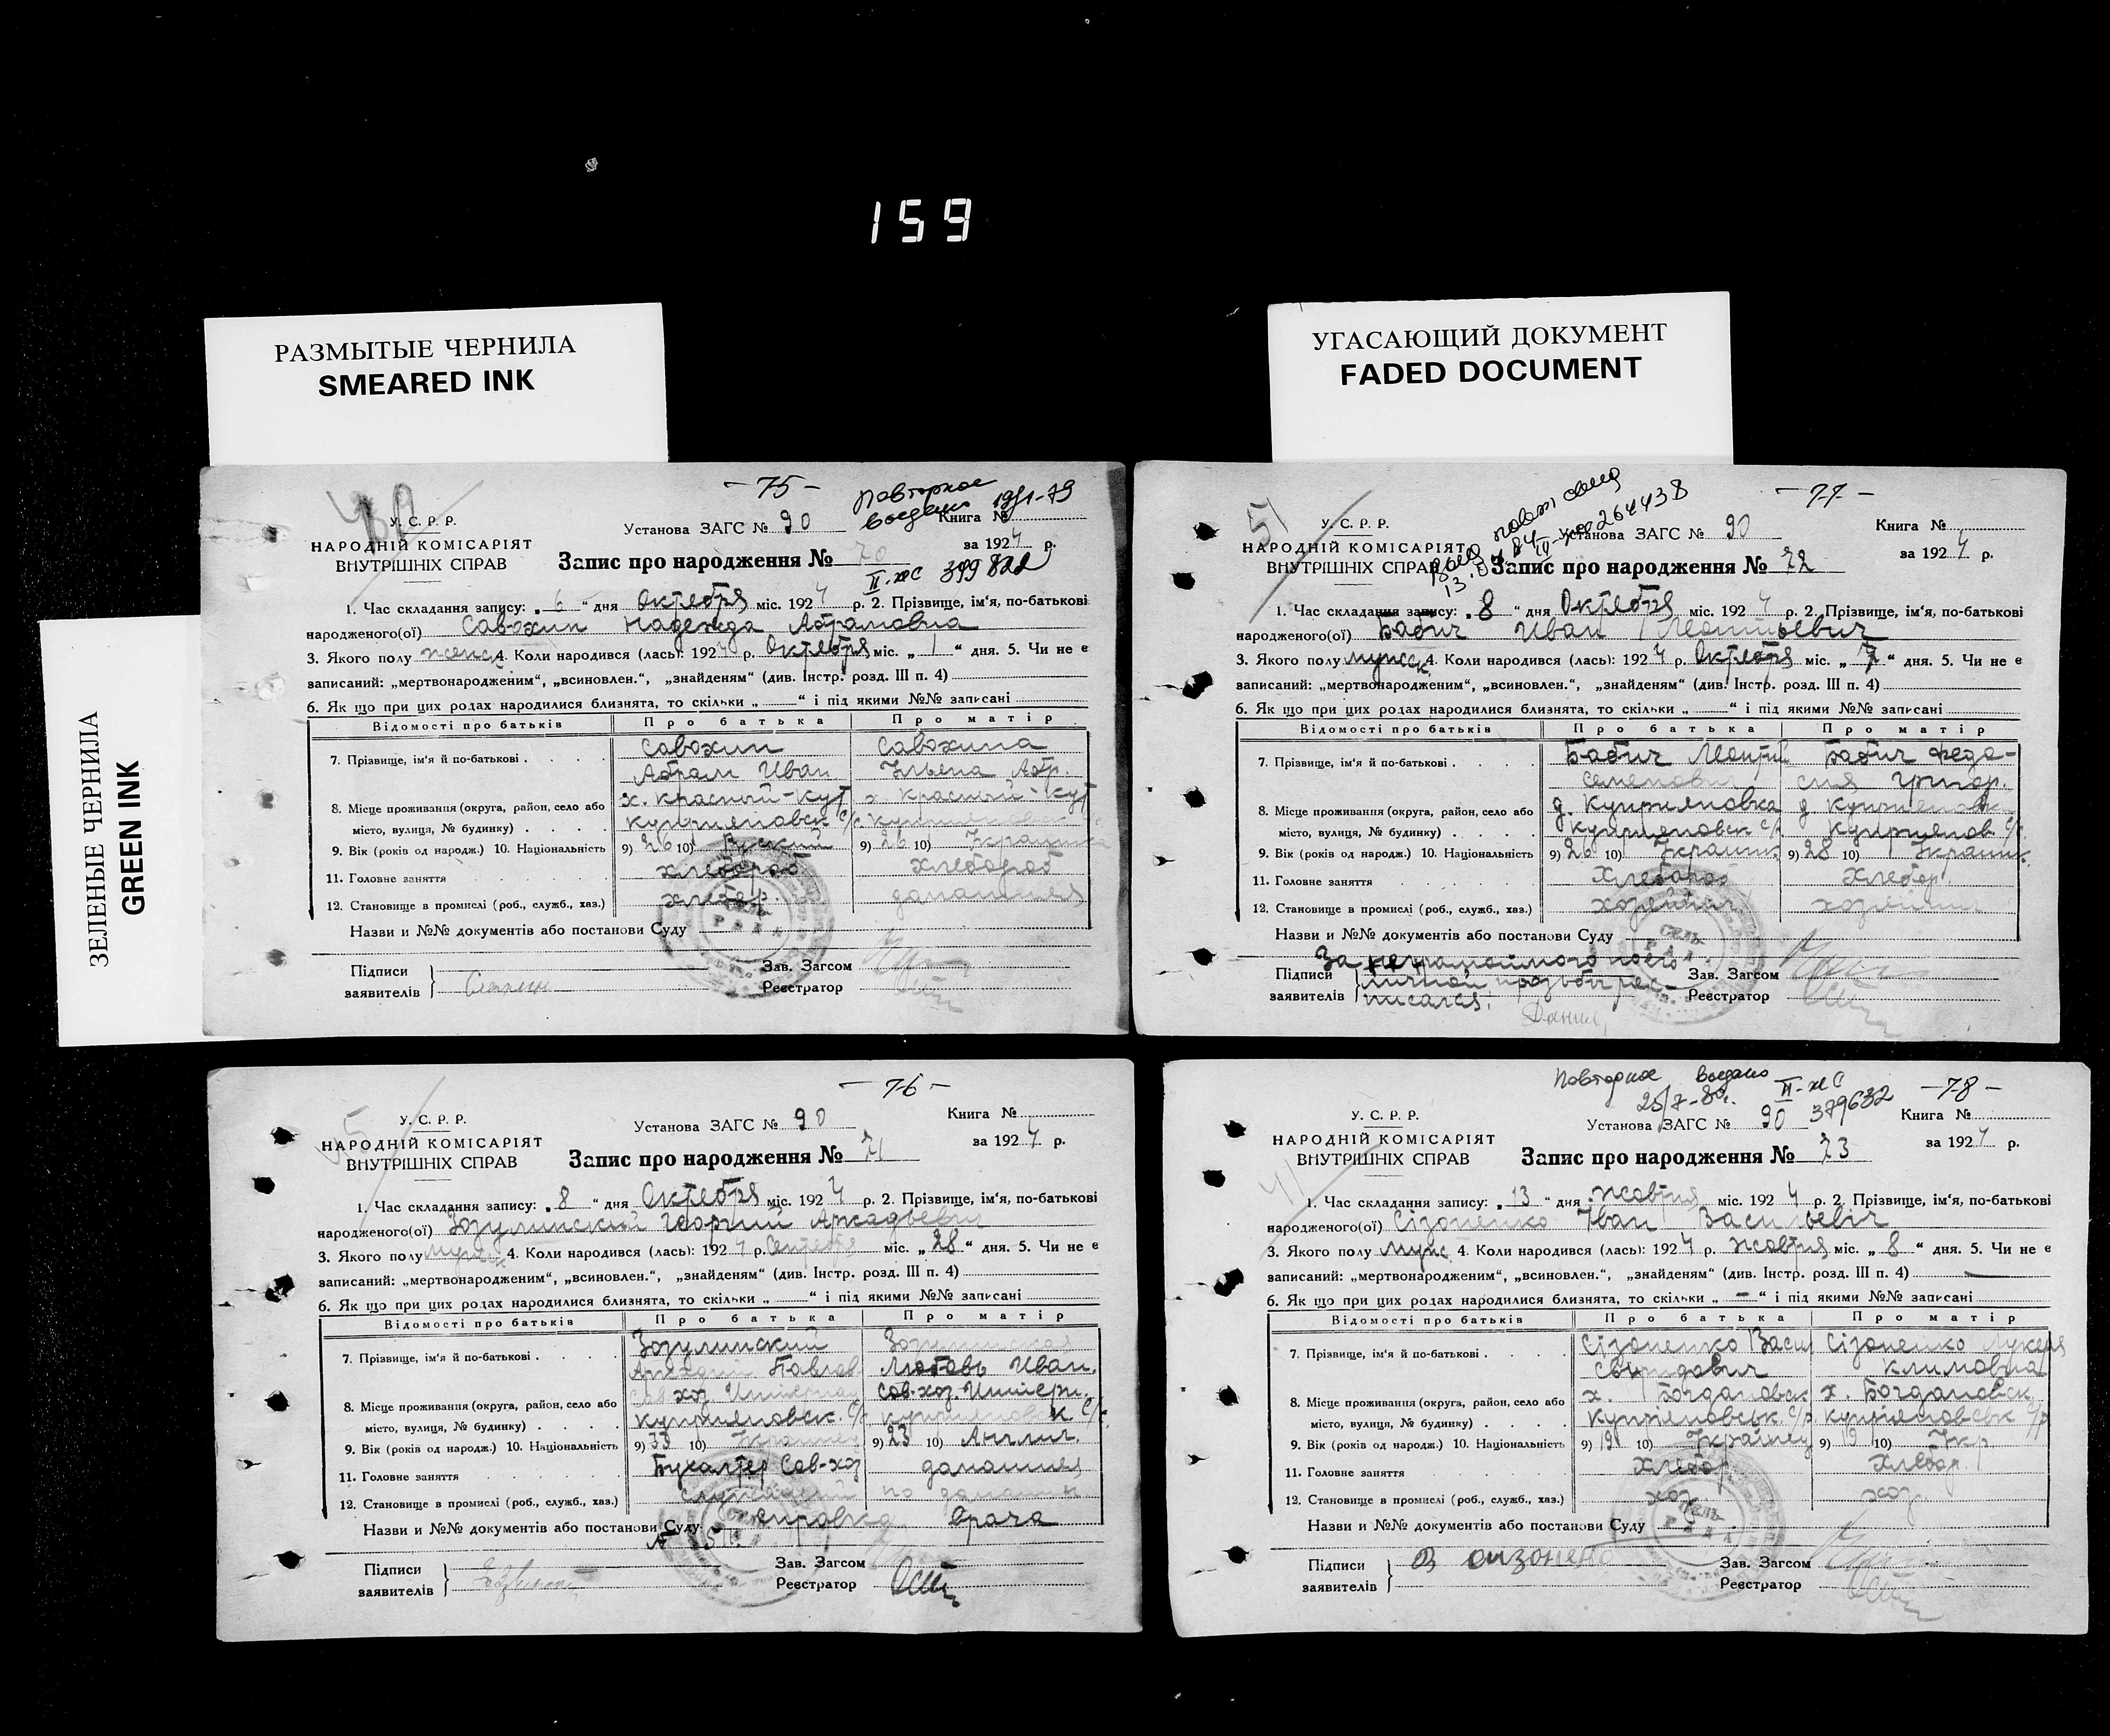 159
РАЗМЫТЫЕ ЧЕРНИЛА
SMEARED INK
УГАСАЮЩИЙ ДОКУМЕНТ
FADED DOCUMENT
ЗЕЛЕНЫЕ ЧЕРНИЛА
GREEN INK
- 75 -
Повторное
выдано 19/I-79
У. С. Р. Р.
Установа ЗАГС № 90 Книга №
НАРОДНІЙ КОМІСАРІЯТ
ВНУТРІШНІХ СПРАВ
Запис про народження № 70
за 1924 р.
II-ЖС 399822
1. Час складання запису: „6“ дня Октебря міс. 1924 р. 2. Прізвище, ім'я, по-батькові
народженого(ої) Савохин Надежда Абрамовна
3. Якого полу женск 4. Коли народився (лась): 1924 р. Октебря міс. „1“ дня. 5. Чи не є
записаний: „мертвонародженим“, „всиновлен.“, „знайденям“ (див. Інстр. розд. III п. 4)
6. Як що при цих родах народилися близнята, то скільки „ “ і під якими №№ записані
Відомості про батьків Про батька Про матір
7. Прізвище, ім'я й по-батькові Савохин Савохина
Абрам Иван Ульена Абр.
8. Місце проживання (округа, район, село або х. Красный-Кут х Красный-Кут
місто, вулиця, № будинку) Куприеновск С/с
9. Вік (років од народж.) 10. Національність 9) 26 10) Руский 9) 26 10)
11. Головне заняття хлебороб хлебороб
12. Становище в промислі (роб., служб., хаз.) хлебор. домашнея
Назви и №№ документів або постанови Суду
Підписи
заявителів
Зав. Загсом
Реєстратор
- 77 -
51
264438
У. С. Р. Р.
Установа ЗАГС № 90 Книга №
НАРОДНІЙ КОМІСАРІЯТ
ВНУТРІШНІХ СПРАВ
Запис про народження № 72
за 1924 р.
1. Час складання запису: „8“ дня Октебря міс. 1924 р. 2. Прізвище, ім'я, по-батькові
народженого(ої) Бабич Иван Леонтьевич
3. Якого полу мужск. 4. Коли народився (лась): 1924 р. Октебря міс. „7“ дня. 5. Чи не є
записаний: „мертвонародженим“, „всиновлен.“, „знайденям“ (див. Інстр. розд. III п. 4)
6. Як що при цих родах народилися близнята, то скільки „ “ і під якими №№ записані
Відомості про батьків Про батька Про матір
7. Прізвище, ім'я й по-батькові Бабич Леонтий Бабич Феда-
Семенович сия Григор.
8. Місце проживання (округа, район, село або д. Куприяновка д Куприеновка
місто, вулиця, № будинку) Куприеновск С/с Куприенов. С/с.
9. Вік (років од народж.) 10. Національність 9) 26 10) Украин. 9) 28 10) Украин.
11. Головне заняття хлебороб хлебор.
12. Становище в промислі (роб., служб., хаз.)
Назви и №№ документів або постанови Суду
За неграмотного по его
Підписи личной прозьбы рос-
заявителів писался:
Зав. Загсом
Реєстратор
- 76 -
У. С. Р. Р.
Установа ЗАГС № 90 Книга №
НАРОДНІЙ КОМІСАРІЯТ
ВНУТРІШНІХ СПРАВ
Запис про народження № 71
за 1924 р.
1. Час складання запису: „8“ дня Октебря міс. 1924 р. 2. Прізвище, ім'я, по-батькові
народженого(ої) Зозулинский Георгий Аркадьевич
3. Якого полу мужск 4. Коли народився (лась): 1924 р. Сентебря міс. „28“ дня. 5. Чи не є
записаний: „мертвонародженим“, „всиновлен.“, „знайденям“ (див. Інстр. розд. III п. 4)
6. Як що при цих родах народилися близнята, то скільки „ “ і під якими №№ записані
Відомості про батьків Про батька Про матір
7. Прізвище, ім'я й по-батькові Зозулинский Зозулинская
Аркадий Павлов. Любовь Иван.
8. Місце проживання (округа, район, село або Сов-хоз Сов-хоз.
місто, вулиця, № будинку) Куприеновск. С/с Куприеновск С/с.
9. Вік (років од народж.) 10. Національність 9) 33 10) 9) 23 10) Англич.
11. Головне заняття Бухалтер Сов-хоз домашнея
12. Становище в промислі (роб., служб., хаз.) служащий
Назви и №№ документів або постанови Суду справка врача
Підписи
заявителів
Зав. Загсом
Реєстратор
Повторное выдано II-ЖС - 78 -
25/7-80г. 379632
У. С. Р. Р.
Установа ЗАГС № 90 Книга №
НАРОДНІЙ КОМІСАРІЯТ
ВНУТРІШНІХ СПРАВ
Запис про народження № 73
за 1924 р.
1. Час складання запису: „13“ дня жовтня міс. 1924 р. 2. Прізвище, ім'я, по-батькові
народженого(ої) Сізоненко Іван Васильевіч
3. Якого полу мужс 4. Коли народився (лась): 1924 р. жовтня міс. „8“ дня. 5. Чи не є
записаний: „мертвонародженим“, „всиновлен.“, „знайденям“ (див. Інстр. розд. III п. 4) —
6. Як що при цих родах народилися близнята, то скільки „—“ і під якими №№ записані
Відомості про батьків Про батька Про матір
7. Прізвище, ім'я й по-батькові Сізоненко Васил Сізоненко Лукеря
Свиридович Климовна
8. Місце проживання (округа, район, село або х. Богдановск х. Богдановск
місто, вулиця, № будинку) Купріяновськ. С/р Купріяновськ С/р
9. Вік (років од народж.) 10. Національність 9) 19 10) Українец 9) 19 10) Укр
11. Головне заняття Хлебор Хлебор.
12. Становище в промислі (роб., служб., хаз.) хоз хоз.
Назви и №№ документів або постанови Суду
Підписи В сизонено
заявителів
Зав. Загсом
Реєстратор